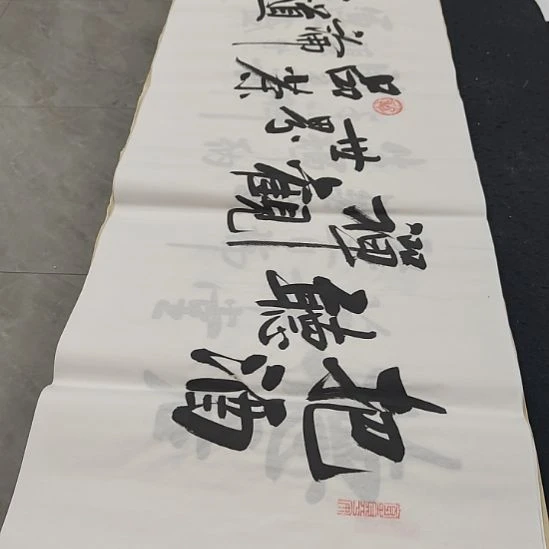 把酒
聽
禪觀
世界
品茶
道